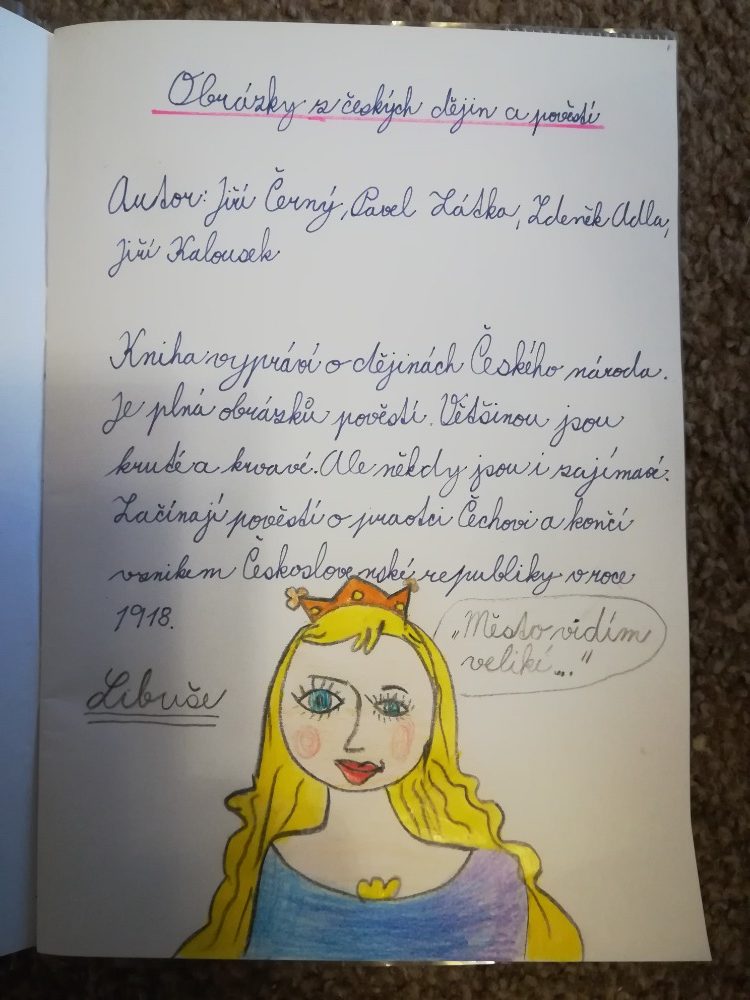 Obrázky z českých dějin a pověstí
Autor: Jiří Černý, Pavel Zátka, Zdeněk Adla,
Jiří Kalousek
Kniha vypráví o dějinách Českého národa.
Je plná obrázků pověstí. Většinou jsou
kruté a krvavé. Ale někdy jsou i zajímavé.
Začínají pověstí o praotci Čechovi a končí
vznikem Československé republiky v roce
1918.
„Město vidím
veliké..."
Libuše